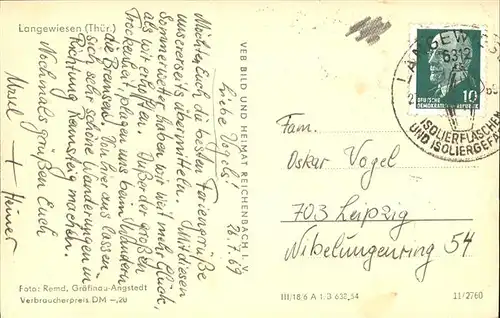 Langewiesen (Thür.)
26.7.69
Liebe Vogels!
Möchten Euch die besten Feriengrüße
unsererseits übermitteln. Mit diesem
Sommerwetter haben wir viel mehr Glück,
als wir erhofften. Außer der großen
Trockenheit, plagen uns beim Wandern
die Bremsen. Von hier aus lassen
sich sehr schöne Wanderungen in
Richtung Rennsteig machen.
Nochmals grüßen Euch
+ Heiner
Foto: Remd, Gräfinau-Angstedt
Verbraucherpreis DM -,20
VEB BILD UND HEIMAT REICHENBACH I. V.
III/18/6 A 1/B 632/64
11/2760
DEUTSCHE
DEMOKRATISCHE REPUBLIK
10
LANGEWIESEN
6312
ISOLIERFLASCHEN
UND ISOLIERGEFÄ
Fam.
Oskar Vogel
703 Leipzig
Nibelungenring 54